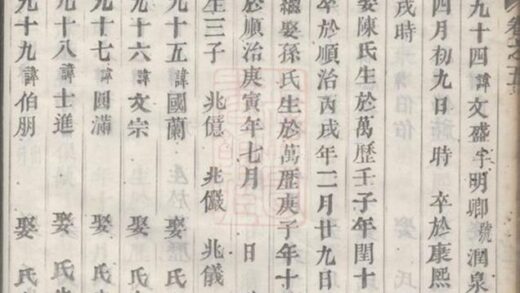 九十四諱文盛字明卿號潤泉
四月初九日 時 卒於康熙
戌時
娶陳氏生於萬歷壬子年閏十
卒於順治丙戌年二月廿九日
繼娶孫氏生於萬歷庚子年十
於順治庚寅年七月 日
生三子 兆億 兆儼 兆儀
九十五諱國蘭 娶氏
九十六諱文宗 娶氏
九十七諱圓滿 娶氏
九十八諱士進 娶氏
九十九諱伯朋 娶氏